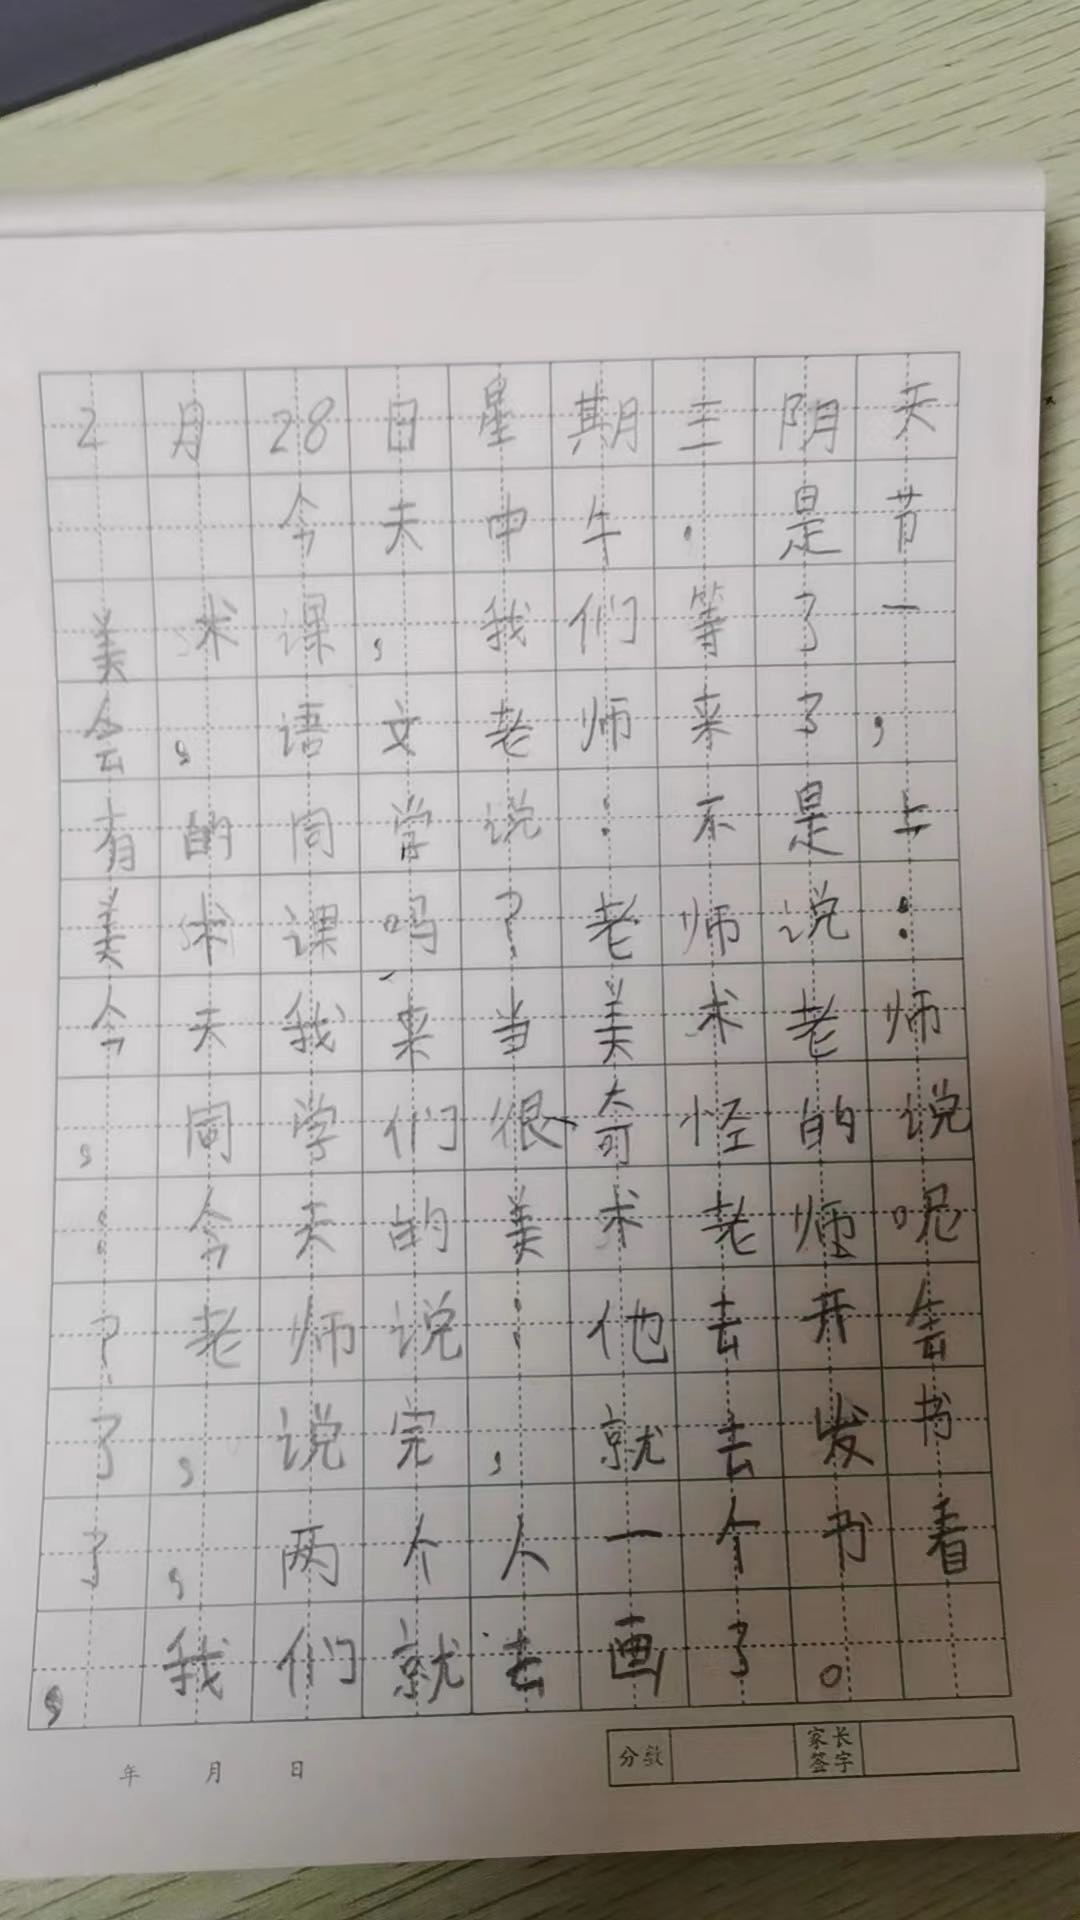 2月28日星期三阴天
今天中午,是节
美术课,我们等了一
会,语文老师来了,
有的同学说:不是上
美术课吗?老师说:
今天我来当美术老师
,同学们很奇怪的说
:今天的美术老师呢
?老师说:他去开会
了,说完,就去发书
了,两个人一个书看
,我们就去画了。
年 月 日
分数 家长签字